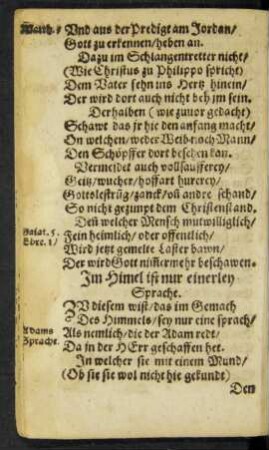 Matth. 3
Vnd aus der Predigt am Jordan/
Gott zu erkennen/heben an.
Dazu im Schlangentretter nicht/
(Wie Christus zu Philippo spricht)
Dem Vater sehn ins Hertz hinein/
Der wird dort auch nicht bey jm sein.
Derhalben (wie zuuor gedacht)
Schawt das jr hie den anfang macht/
On welchen/weder Weib noch Mann/
Den Schöpffer dort beschen kan.
Vermeidet auch vollsaufferey/
Geitz/wucher/hoffart hurerey/
Gottslestrūg/zanck/oñ andre schand/
So nicht gezympt dem Christenstand.
Deñ welcher Mensch mutwilliglich/
Galat. 5.
Fein heimlich/oder offentlich/
Ebre. 1/
Wird jetzt gemelte Laster bawn/
Der wird Gott nim̃ermehr beschawen.
Im Himel ist nur einerley
Sprache.
ZV diesem wist/das im Gemach
Des Himmels/sey nur eine sprach/
Adams
Als nemlich/die der Adam redt/
Sprache.
Da jn der HErr geschaffen het.
In welcher sie mit einem Mund/
(Ob sie sie wol nicht hie gekundt)
Den